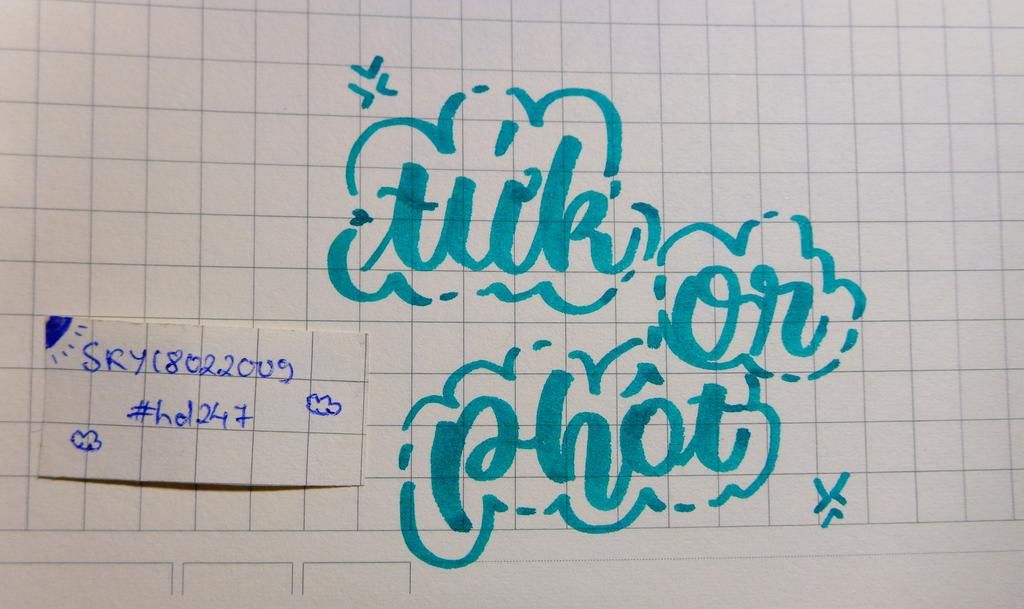 tick
or
SKY18022009
phôt
#hd247